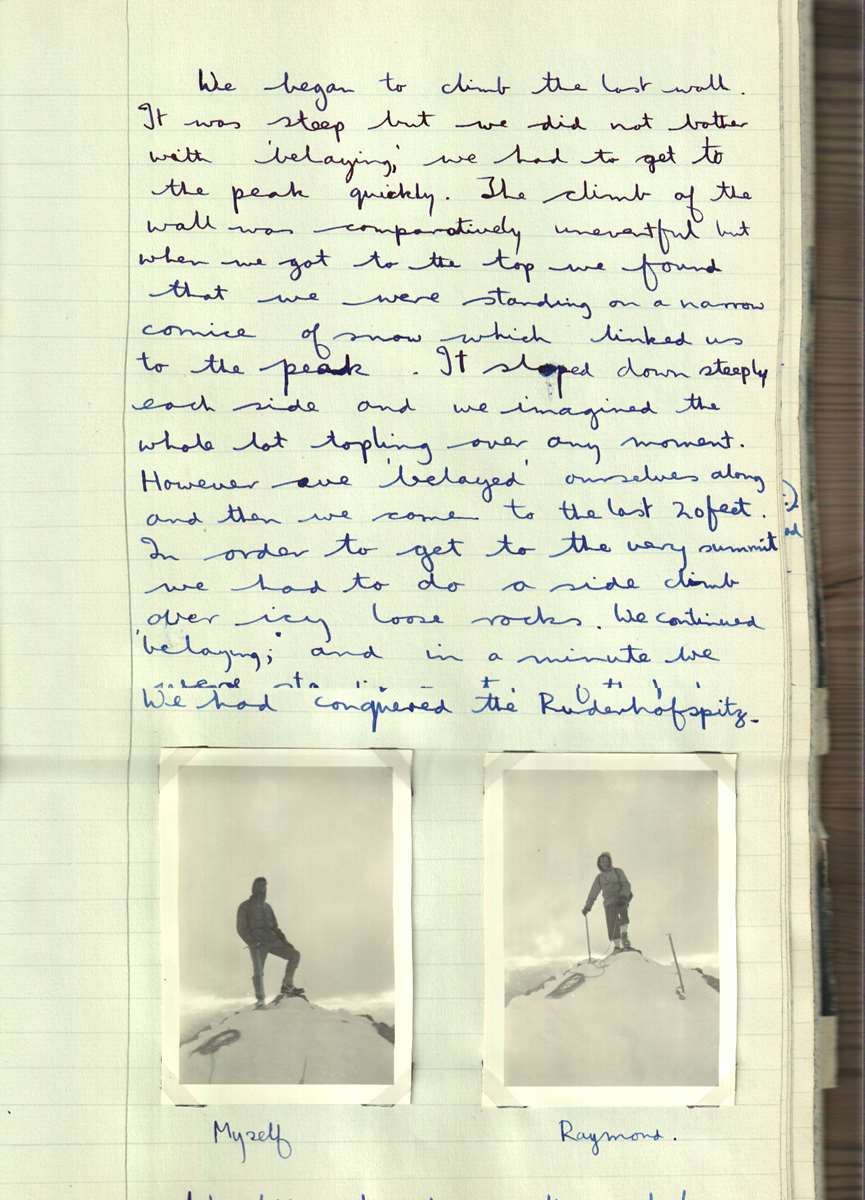 We began to climb the last wall.
It was steep but we did not bother
with 'belaying,' we had to get to
the peak quickly. The climb of the
wall was comparatively uneventful but
when we got to the top we found
that we were standing on a narrow
cornice of snow which linked us
to the peak. It sloped down steeply
each side and we imagined the
whole lot topling over any moment.
However we 'belayed' ourselves along
and then we come to the last 20 feet.
In order to get to the very summit
we had to do a side climb
over icy loose rocks. We continued
'belaying;' and in a minute we
We had conquered the Ruderhofspitz.
Myself
Raymond.